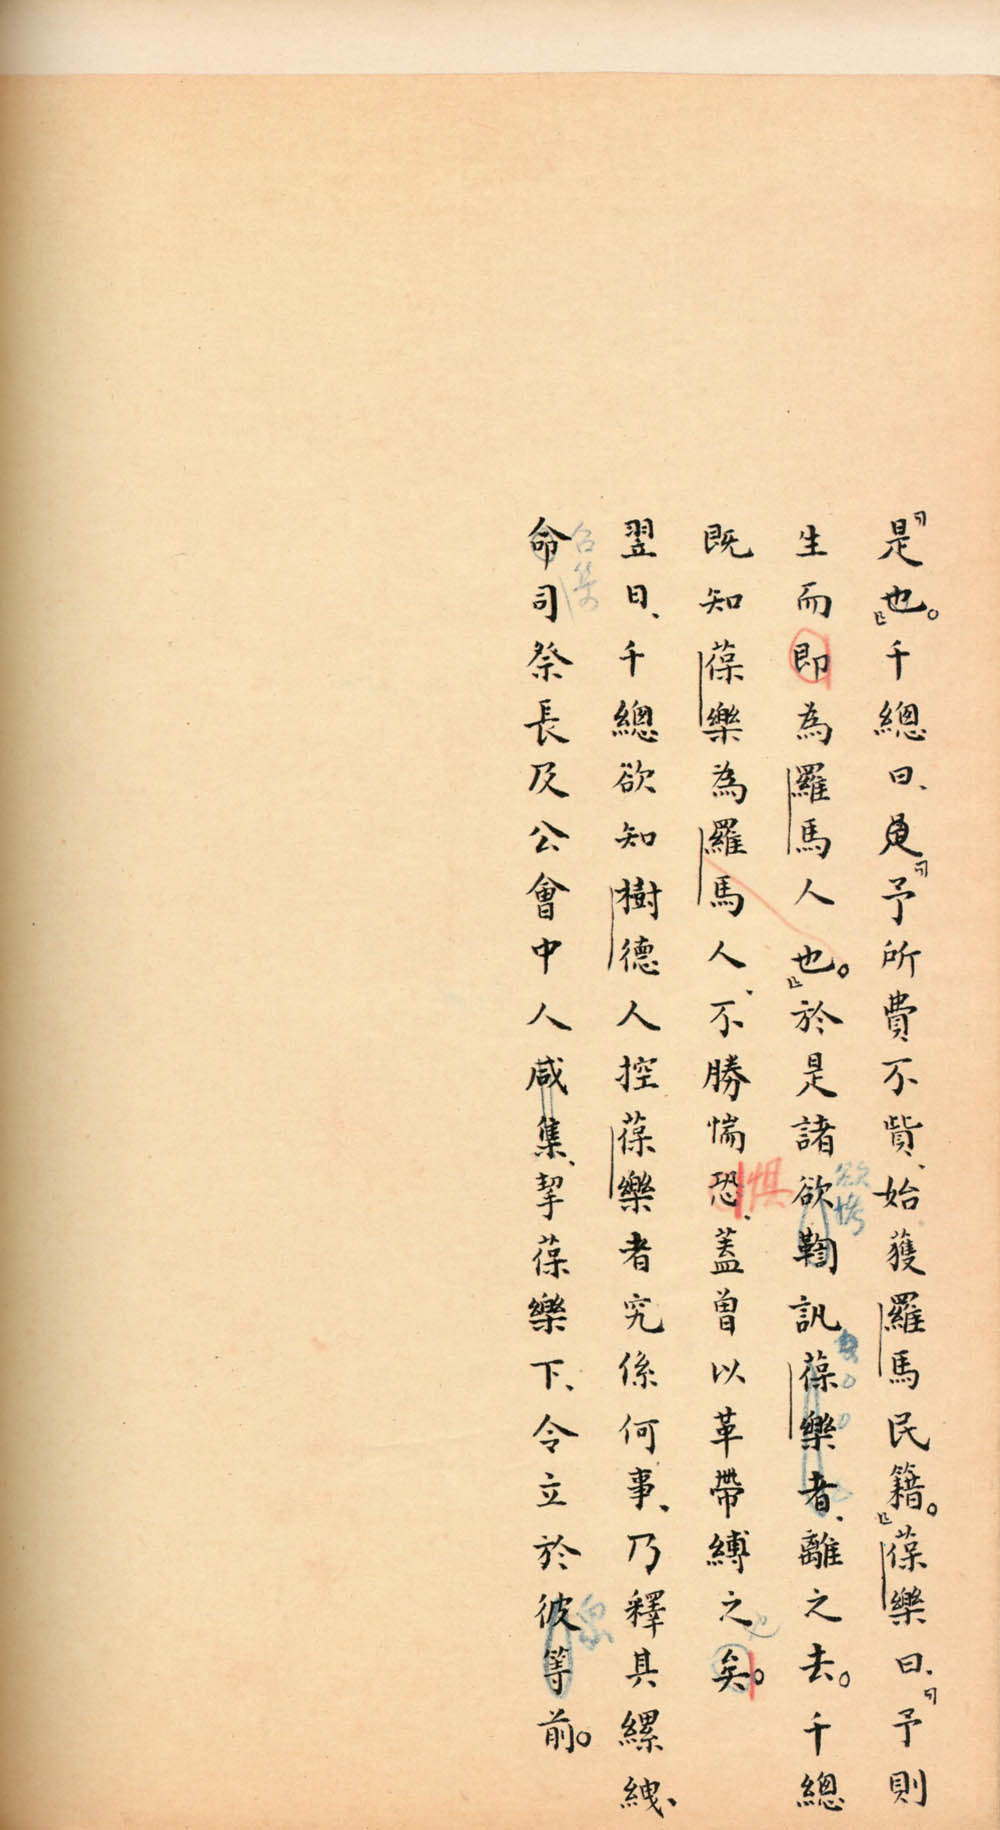 「是也。」千總曰、「予所費不貲、始獲羅馬民籍。」葆樂曰、「予則
生而即為羅馬人也。」於是諸欲鞫訊葆樂者、離之去。千總
欲拷
既知葆樂為羅馬人、不勝惴恐、蓋曾以革帶縛之矣。
懼
也
翌日、千總欲知樹德人控葆樂者究係何事、乃釋其縲絏、
命司祭長及公會中人咸集、挈葆樂下、令立於彼等前。
召集
眾